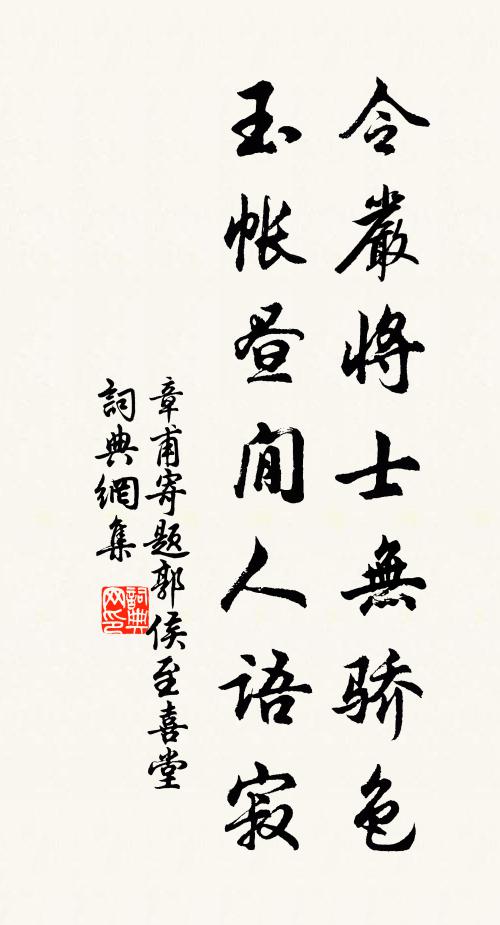 令嚴將士無骄色
玉帐昼閒人語寂
章甫寄题郭侯至喜堂
詞典網集
詞典网印